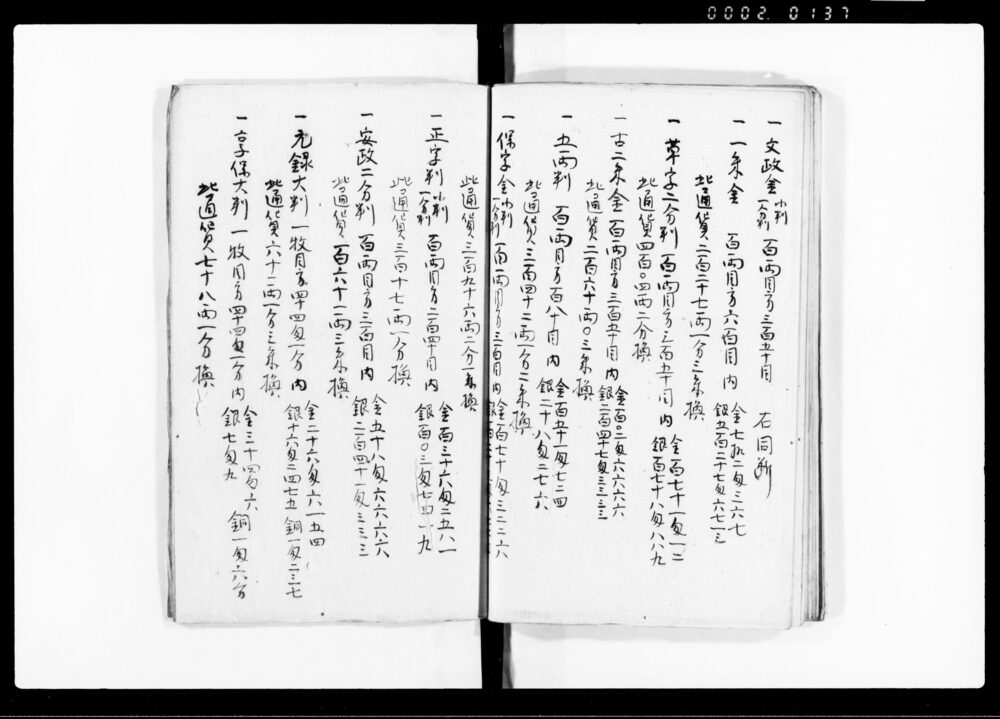 0002. 0137
一 文政金 小判 一分判 百両目方三百五十目 右同断
一 一朱金 百両目方六百目 内 金七拾二匁三六七 銀五百二十七匁六七一三
此通貨二百二十七両一分三朱換
一 草字二分判 百両目方三百五十目 内 金百七十一匁一二 銀百七十八匁八八九
此通貨四百〇四両二分換
一 古二朱金 百両目方三百五十目 内 金百〇二匁六六六六 銀二百四十七匁三三三三
此通貨二百六十両〇三朱換
一 五両判 百両目方百八十目 内 金百五十一匁七二四 銀二十八匁二七六
此通貨三百四十二両一分二朱換
一 保字金 小判 一分判 百両目方三百目 内 金百七十匁三二二六
此通貨三百九十六両二分一朱換
一 正字判 小判 一分判 百両目方二百四十目 内 金百三十六匁二五八一 銀百〇三匁七四一九
此通貨三百十七両一分換
一 安政二分判 百両目方三百目 内 金五十八匁六六六六 銀二百四十一匁三三三三
此通貨百六十一両三朱換
一 元録大判 一枚目方四十四匁一分 内 金二十六匁六一五四 銀十六匁二四七五 銅一匁二三七
此通貨六十二両一分三朱換
一 享保大判 一枚目方四十四匁一分 内 金三十四匁六 銀七匁九 銅一匁六分
此通貨七十八両一分換